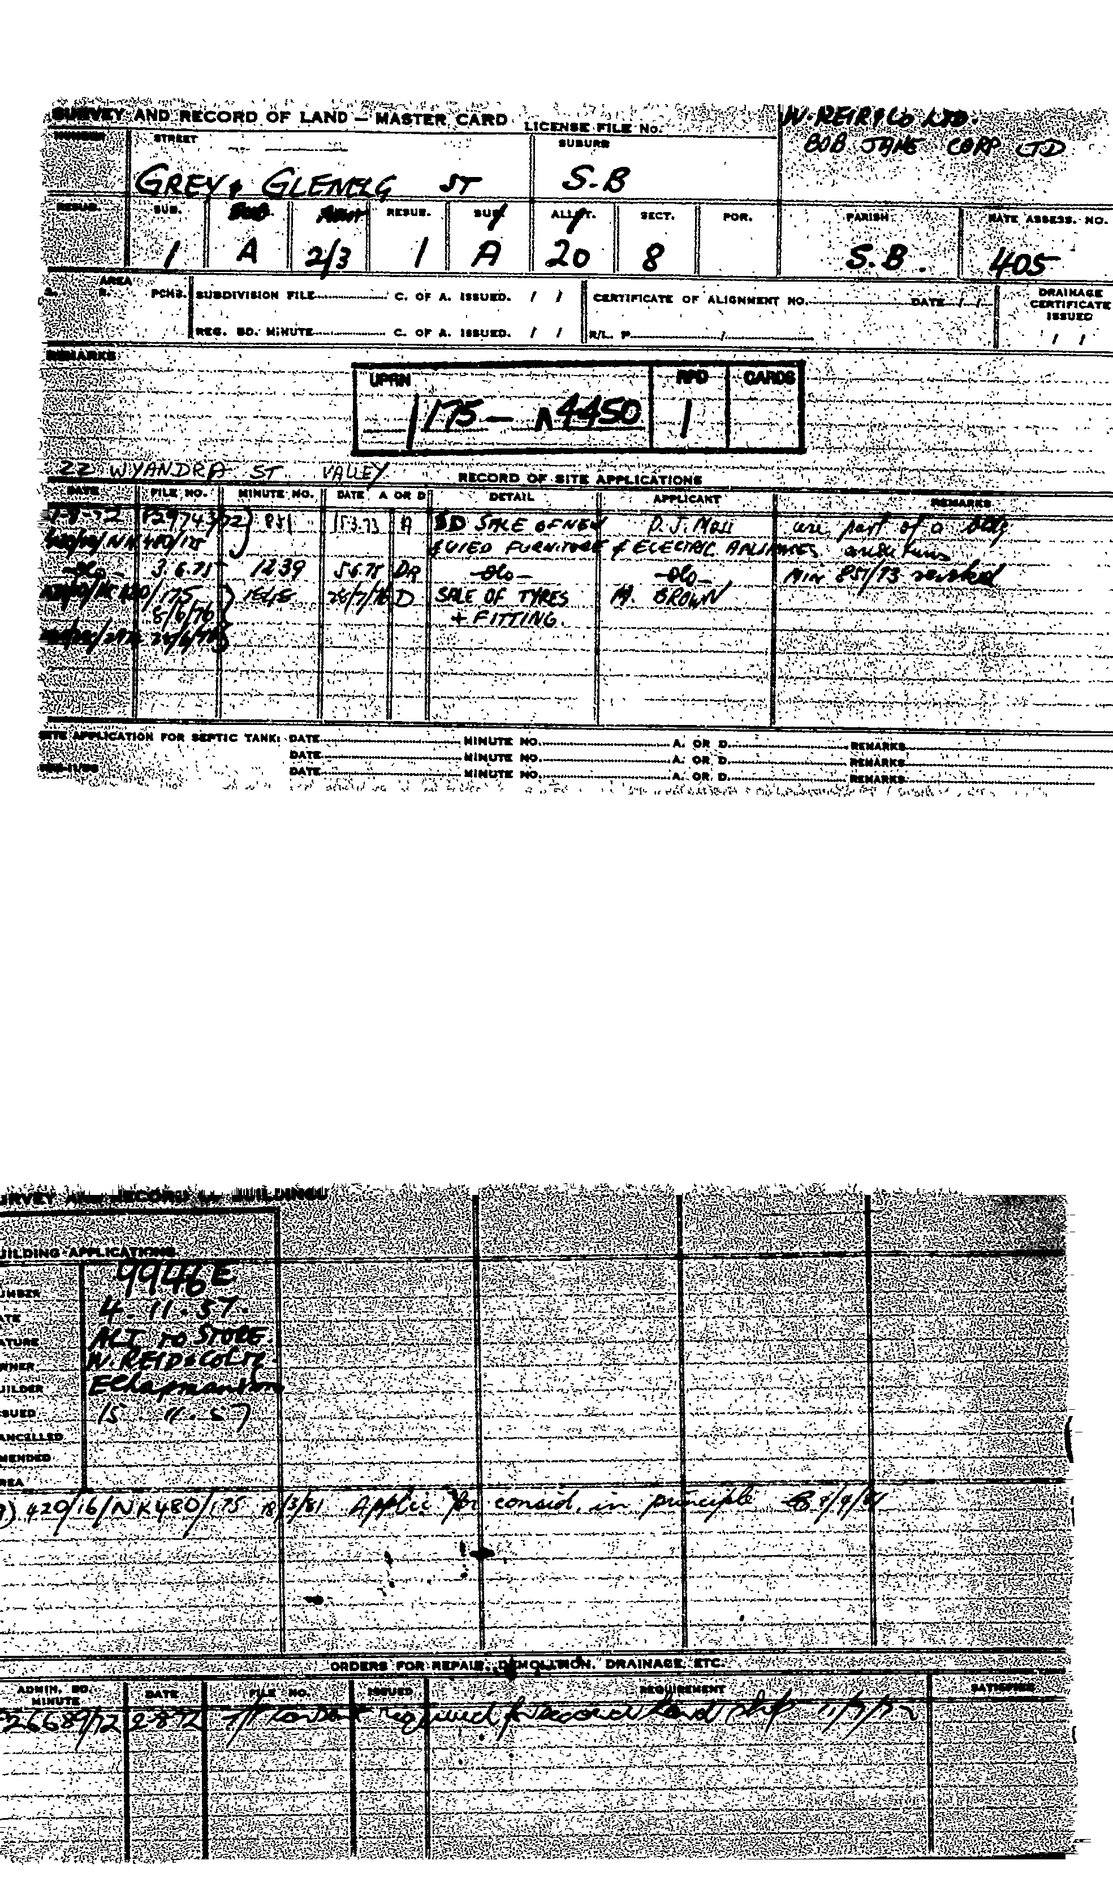 SURVEY AND RECORD OF LAND — MASTER CARD
LICENSE FILE No.
W. REID & CO LTD.
BOB JANE CORP
NUMBER
STREET
SUBURB
GREY & GLENELG ST
S.B
RESUB.
SUB.
RESUB.
SUB
ALLOT.
SECT.
POR.
PARISH
RATE ASSESS. NO.
1
A
2/3
1
A
20
8
S.B.
405
AREA
R.
PCHS.
SUBDIVISION FILE
C. OF A. ISSUED. / /
CERTIFICATE OF ALIGNMENT NO.
DATE / /
DRAINAGE CERTIFICATE ISSUED
REG. BD. MINUTE
C. OF A. ISSUED. / /
R/L. P. /
/ /
REMARKS
UPRN
RPD
CARDS
175 — A4450
1
22 WYANDRA ST. VALLEY
RECORD OF SITE APPLICATIONS
DATE
FILE NO.
MINUTE NO.
DATE
A OR D
DETAIL
APPLICANT
REMARKS
29743/72
851
A
SALE OF NEW
D. J.
use part of a bldg
& USED FURNITURE & ELECTRIC APPLIANCES
-do-
3.6.75
1239
5.6.75
-do-
-do-
MIN 851/73
8/6/76
D
SALE OF TYRES
BROWN
+ FITTING.
SITE APPLICATION FOR SEPTIC TANK: DATE
MINUTE NO.
A. OR D.
REMARKS
DATE
MINUTE NO.
A. OR D.
REMARKS
DATE
MINUTE NO.
A. OR D.
REMARKS
URVEY AND RECORD OF BUILDINGS
UILDING APPLICATIONS
UMBER
9946E
ATE
4.11.57.
ATURE
ALT TO STORE.
WNER
W. REID & CO LTD
UILDER
E Chapman & Son
SUED
15 11.57
ANCELLED
MENDED
REA
420/16/NK480/175 18/3/81 Applic for consid. in principle
ORDERS FOR REPAIR, DEMOLITION, DRAINAGE ETC.
ADMIN. BD. MINUTE
DATE
FILE NO.
ISSUED
REQUIREMENT
SATISFIED
26689/72
2.8.72
required for second hand shop